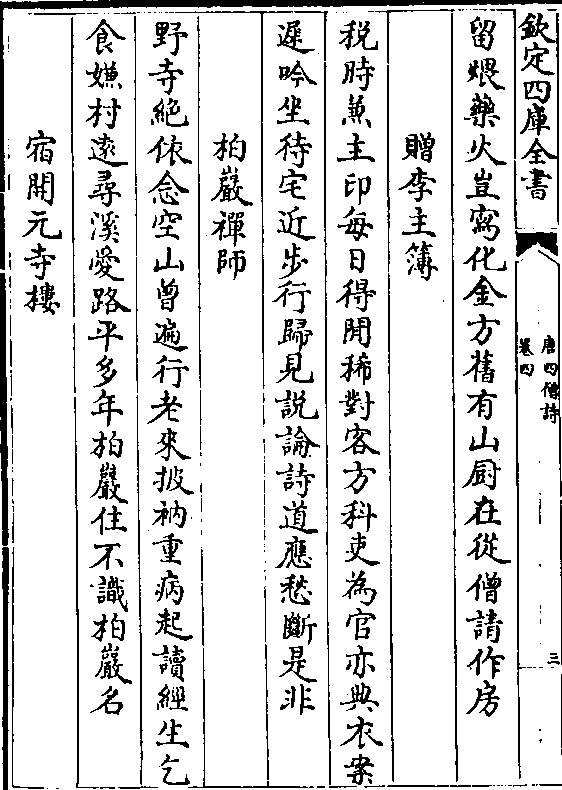 欽定四庫全書
唐四僧詩
卷四
三
留煨藥火豈寫化金方舊有山厨在從僧請作房
贈李主簿
税時兼主印每日得閒稀對客方科吏為官亦典衣案
遲吟坐待宅近步行歸見説論詩道應愁斷是非
柏巖禪師
野寺絶依念空山曾遍行老來披衲重病起讀經生乞
食嫌村逺尋溪愛路平多年柏巖住不識柏巖名
宿開元寺樓